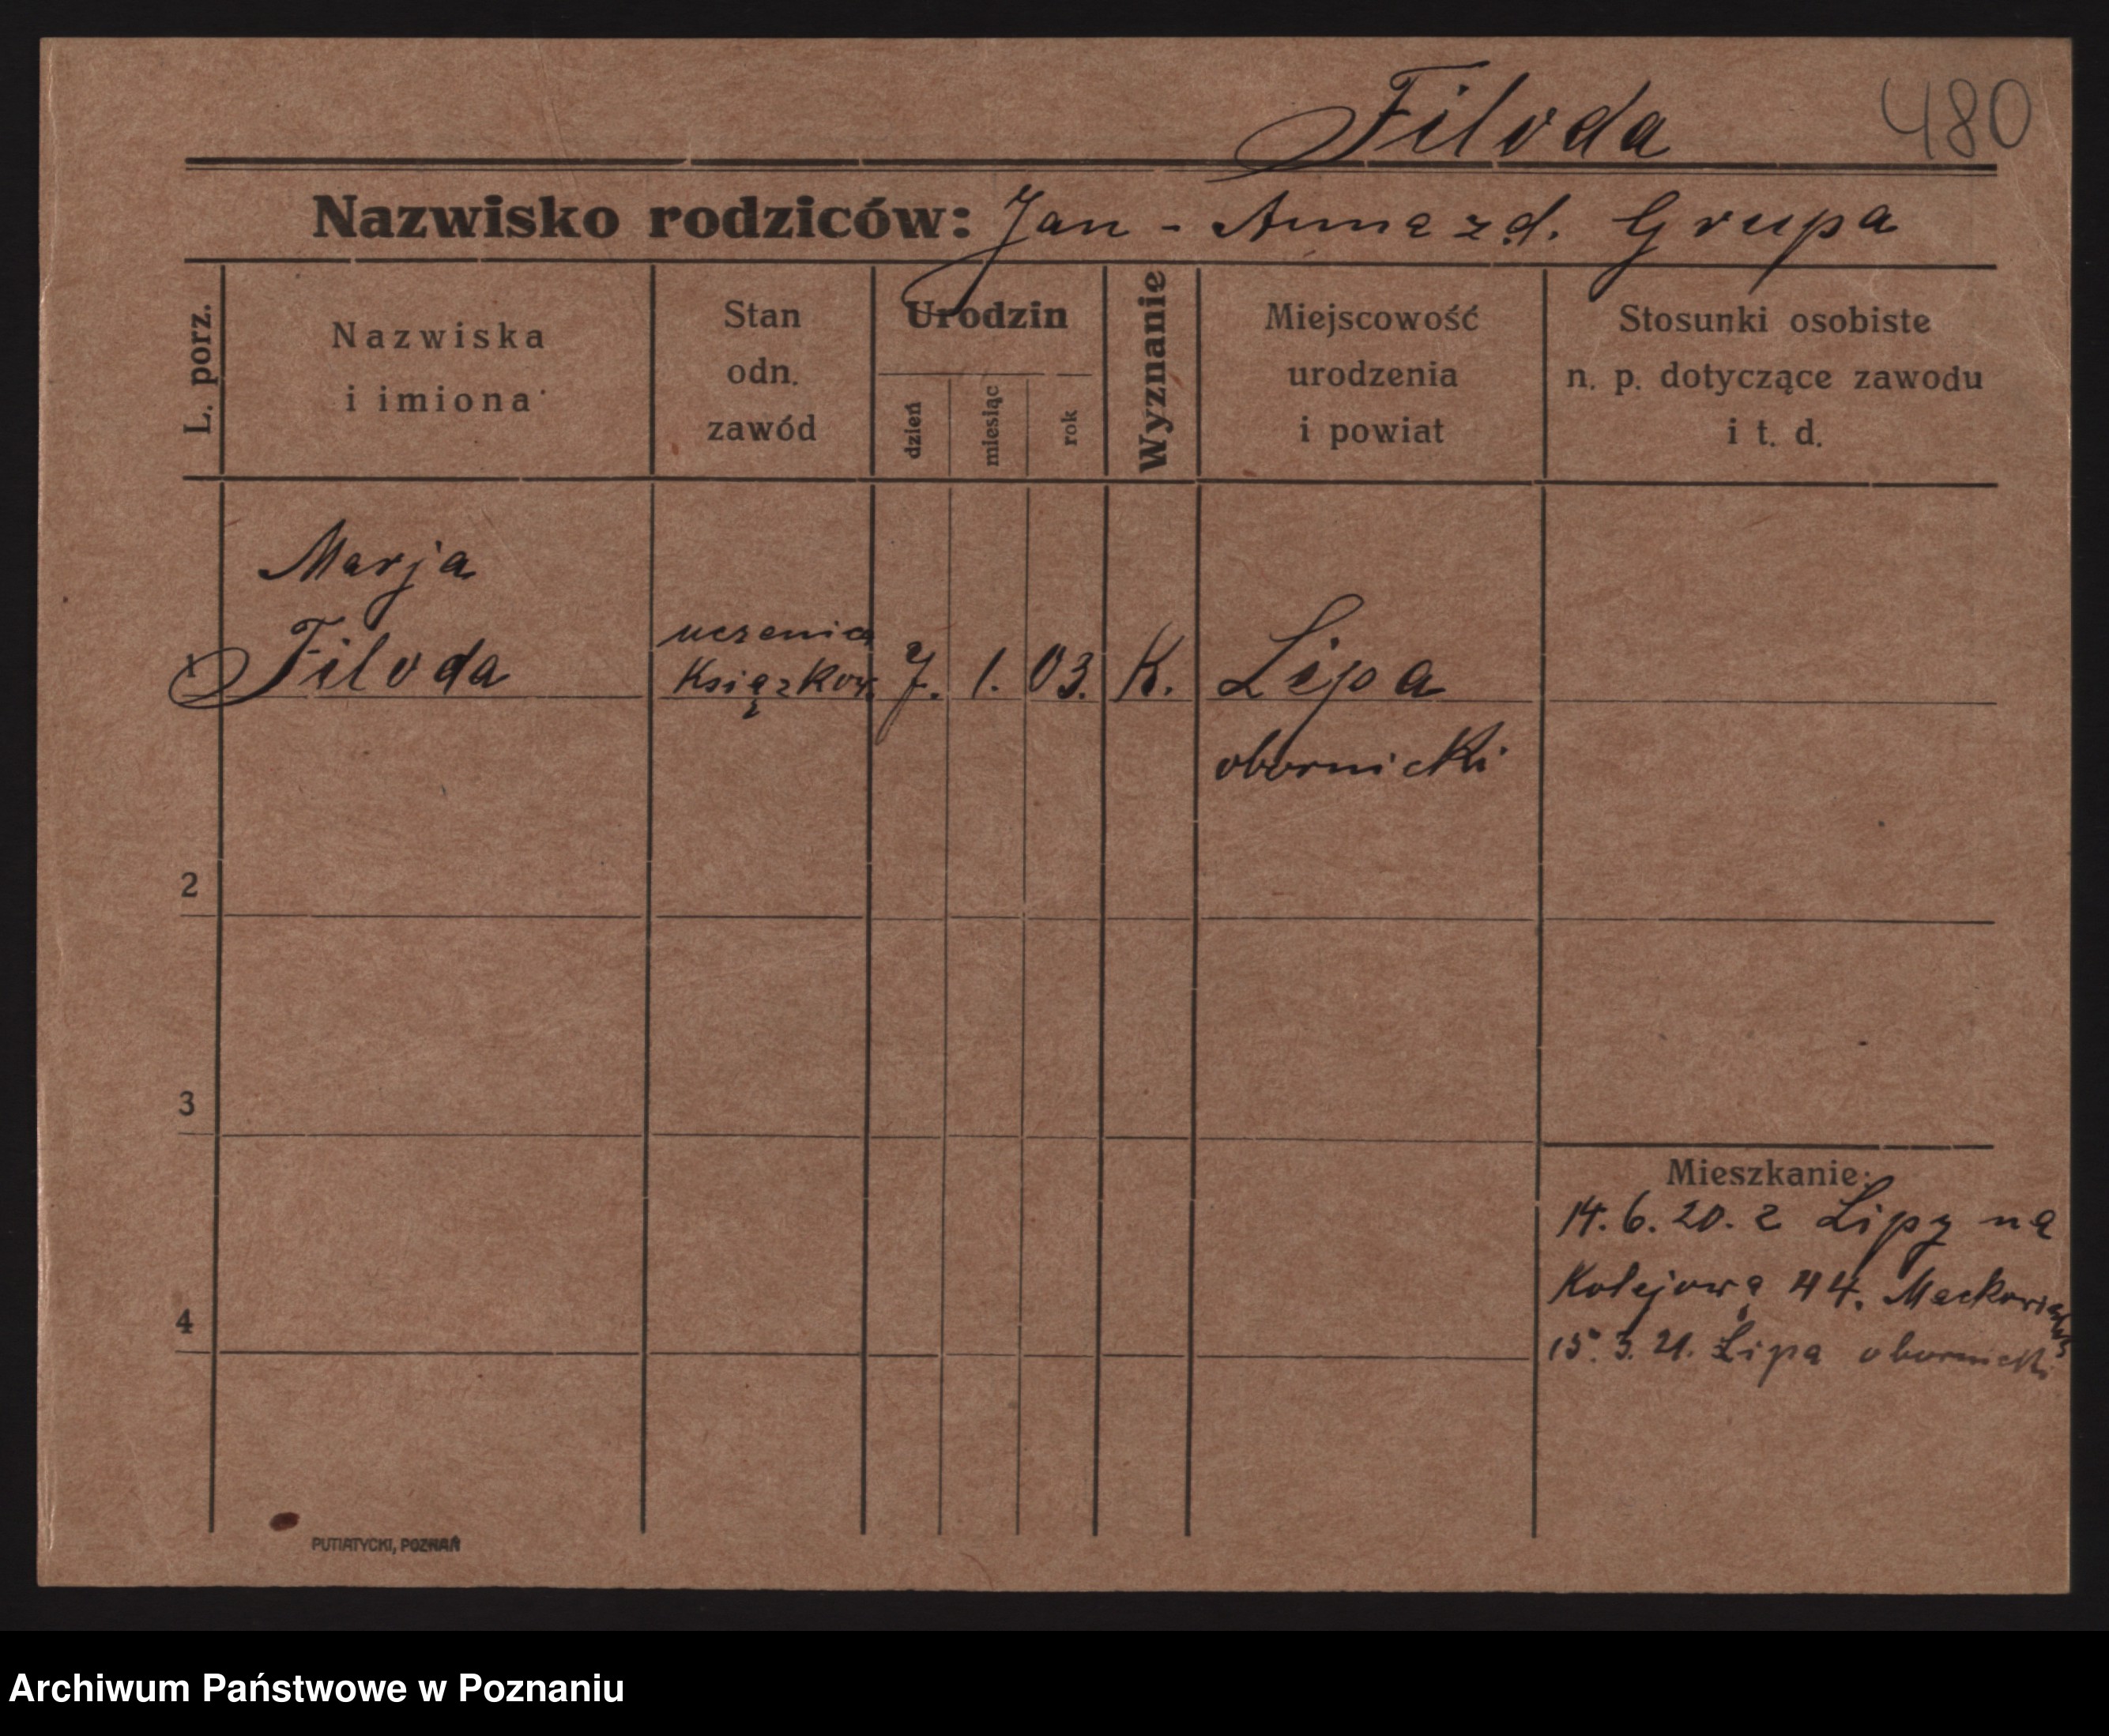 Filoda 480
Nazwisko rodziców: Jan - Anna z d. Grupa
L. porz.
Nazwiska
i imiona
Stan
odn.
zawód
Urodzin
dzień
miesiąc
rok
Wyznanie
Miejscowość
urodzenia
i powiat
Stosunki osobiste
n. p. dotyczące zawodu
i t. d.
Marja
1 Filoda
uczenica
Książkow.
7. 1. 03. K. Lipa
obornicki
2
3
4
Mieszkanie:
14. 6. 20. z Lipy na
Kolejową 44.
15. 3. 21. Lipa obornicki
PUTIATYCKI, POZNAŃ
Archiwum Państwowe w Poznaniu